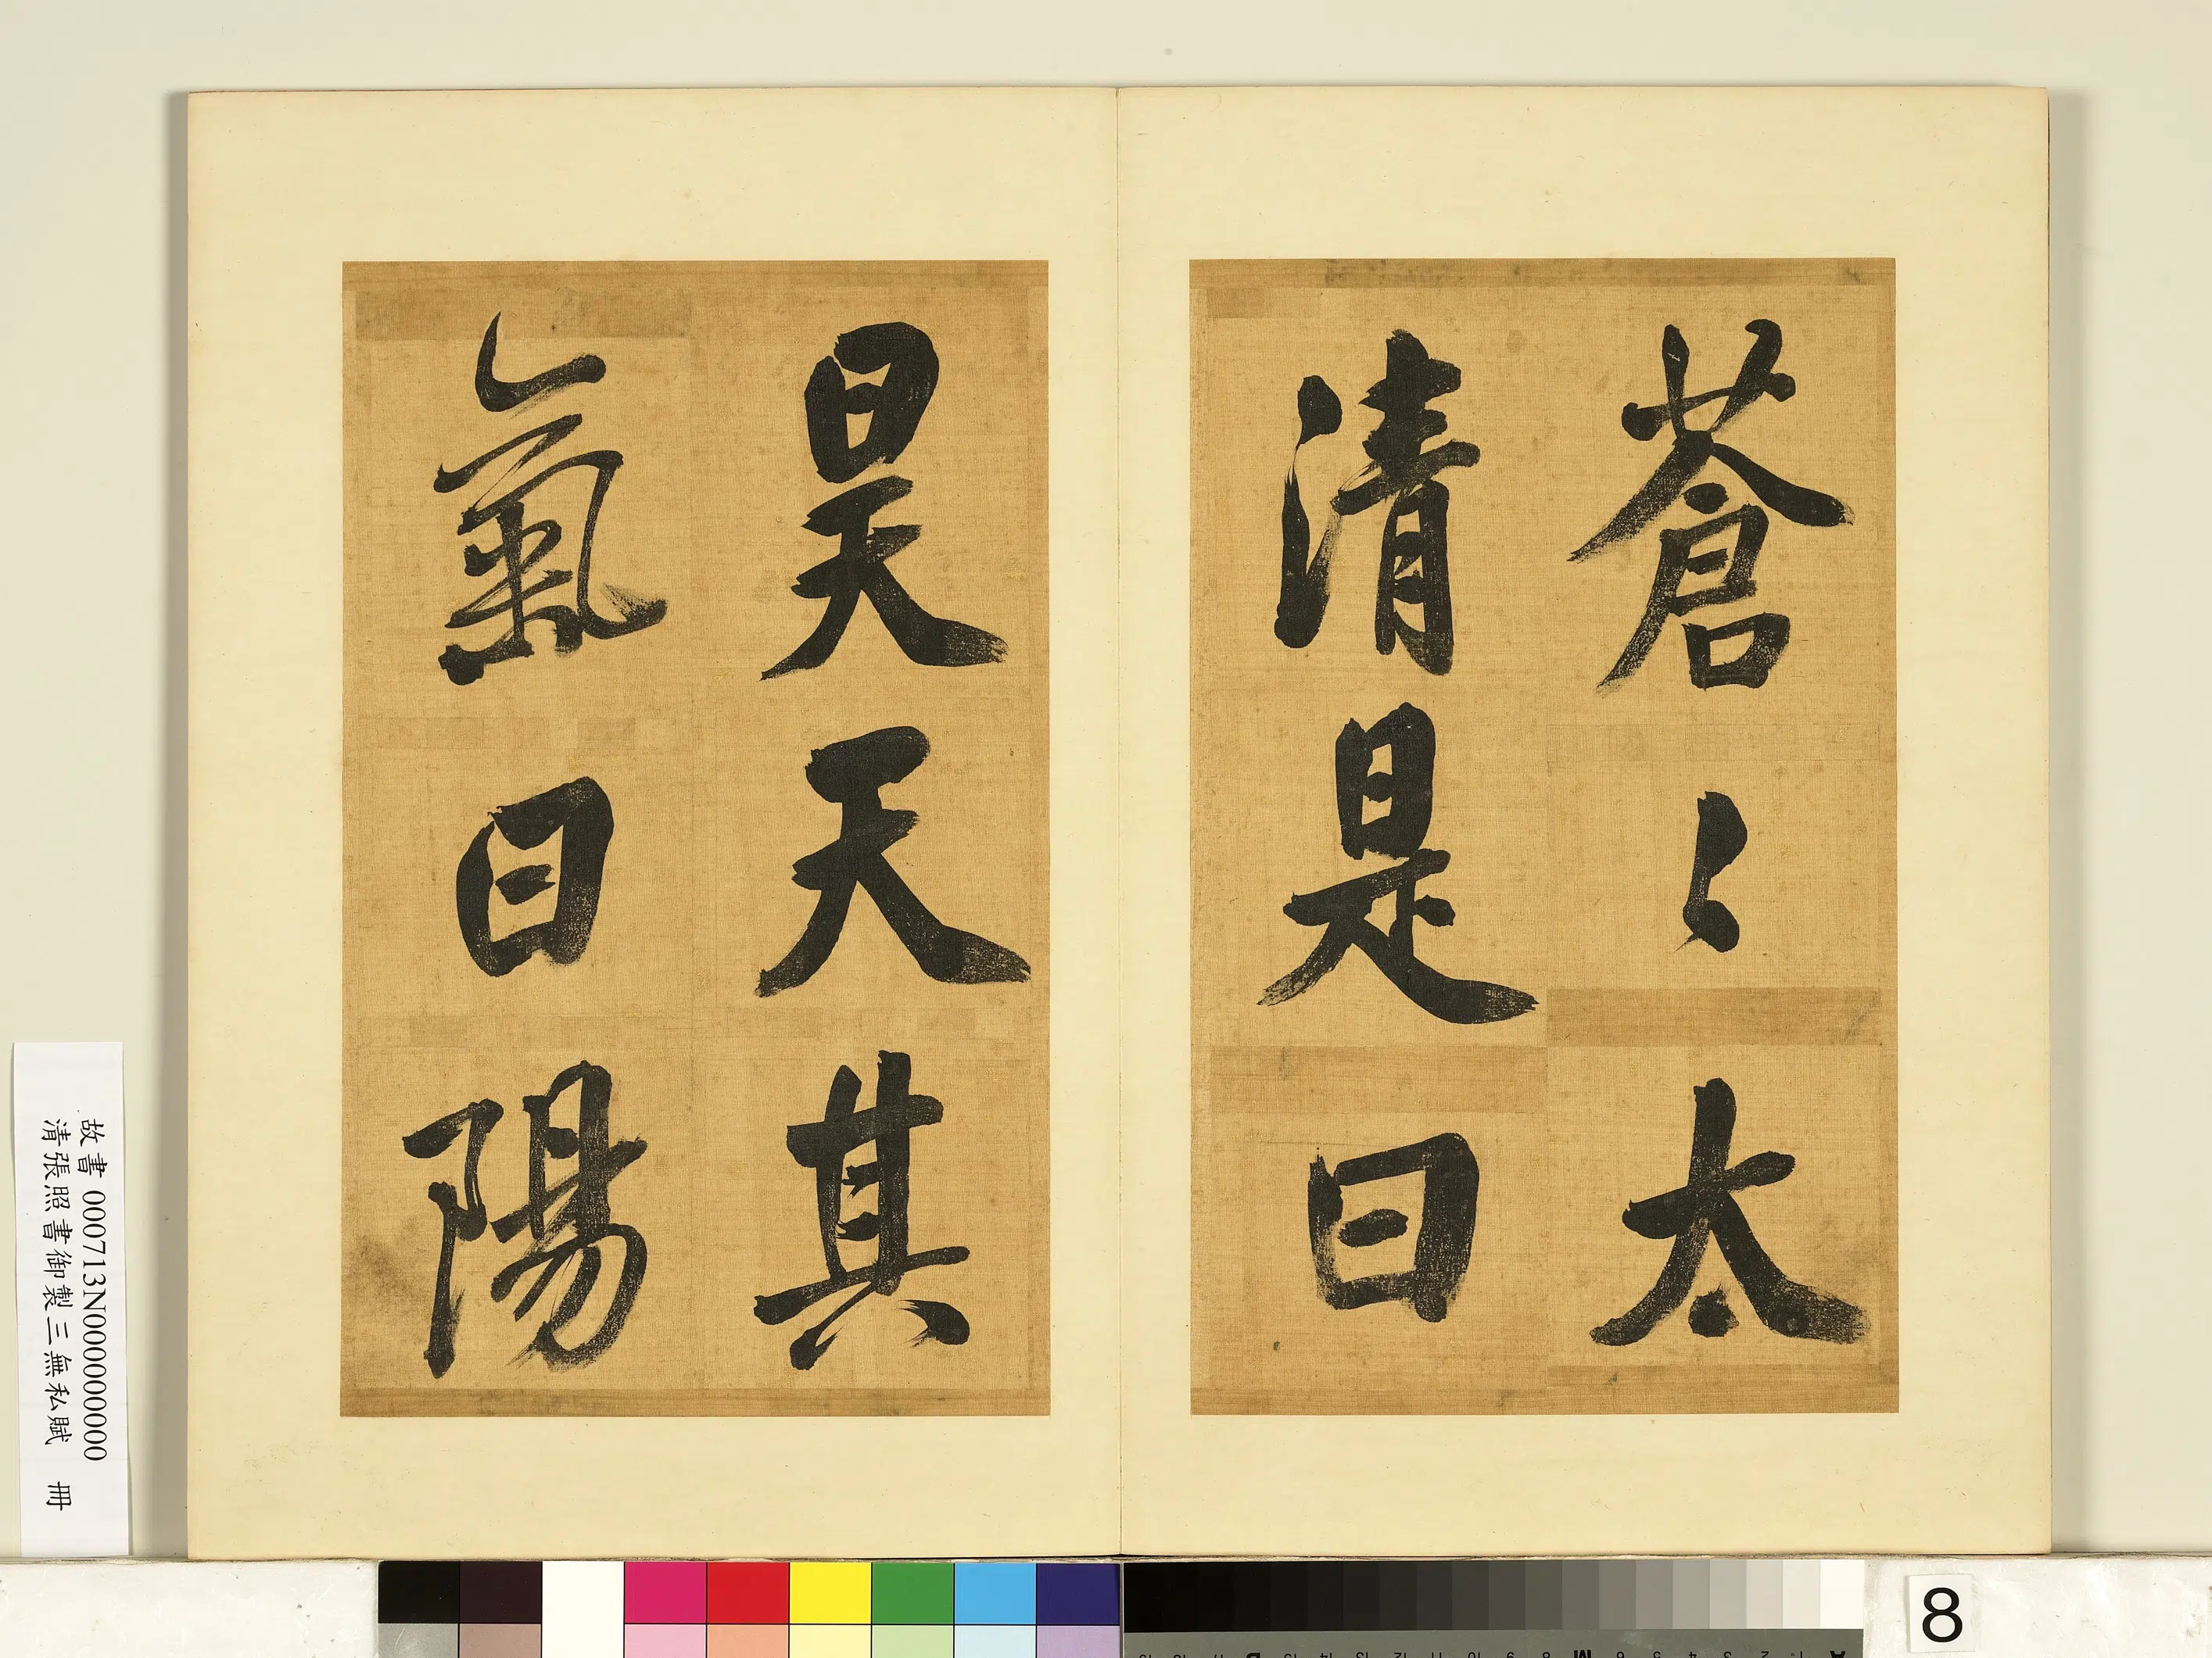 蒼〻太
清是曰
昊天其
氣曰陽
故書 000713N000000000
清張照書御製三無私賦 冊
8